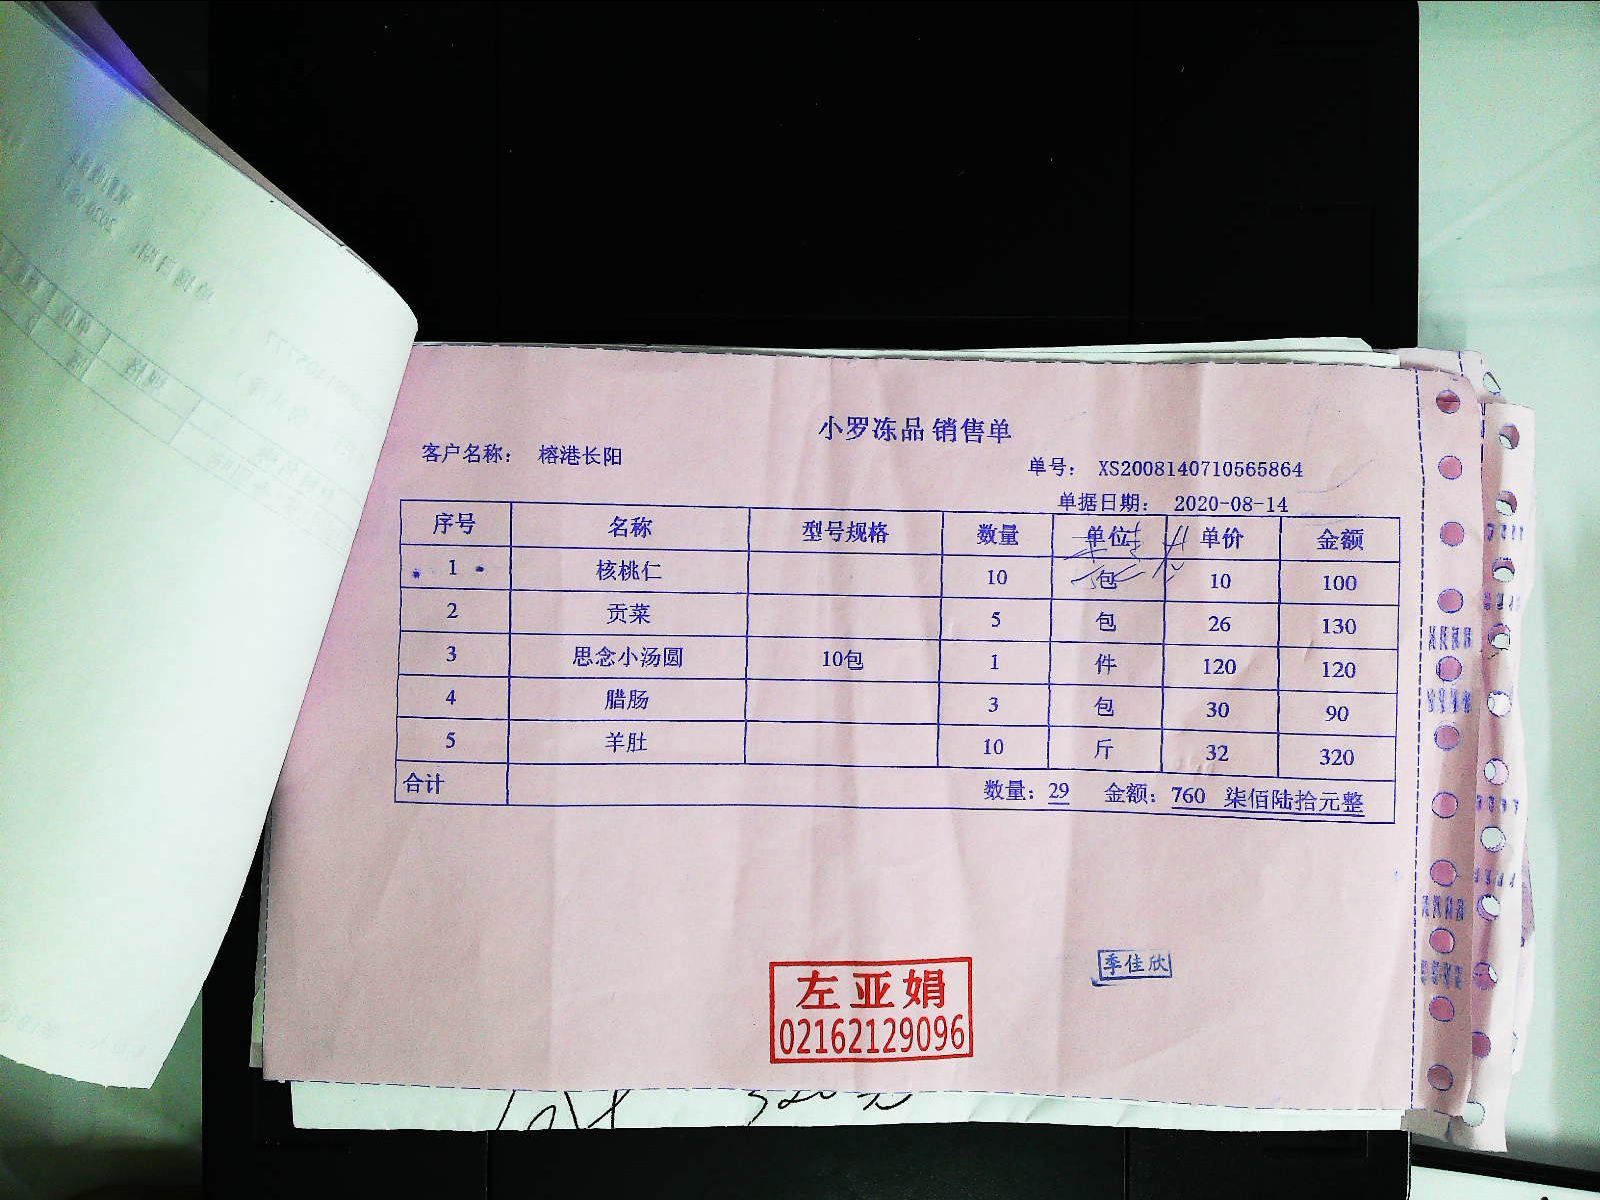 小罗冻品 销售单
客户名称： 榕港长阳
单号： XS2008140710565864
单据日期： 2020-08-14
序号 名称 型号规格 数量 单位 单价 金额
1 核桃仁 10 包 10 100
2 贡菜 5 包 26 130
3 思念小汤圆 10包 1 件 120 120
4 腊肠 3 包 30 90
5 羊肚 10 斤 32 320
合计 数量：29 金额：760 柒佰陆拾元整
左亚娟
02162129096
季佳欣